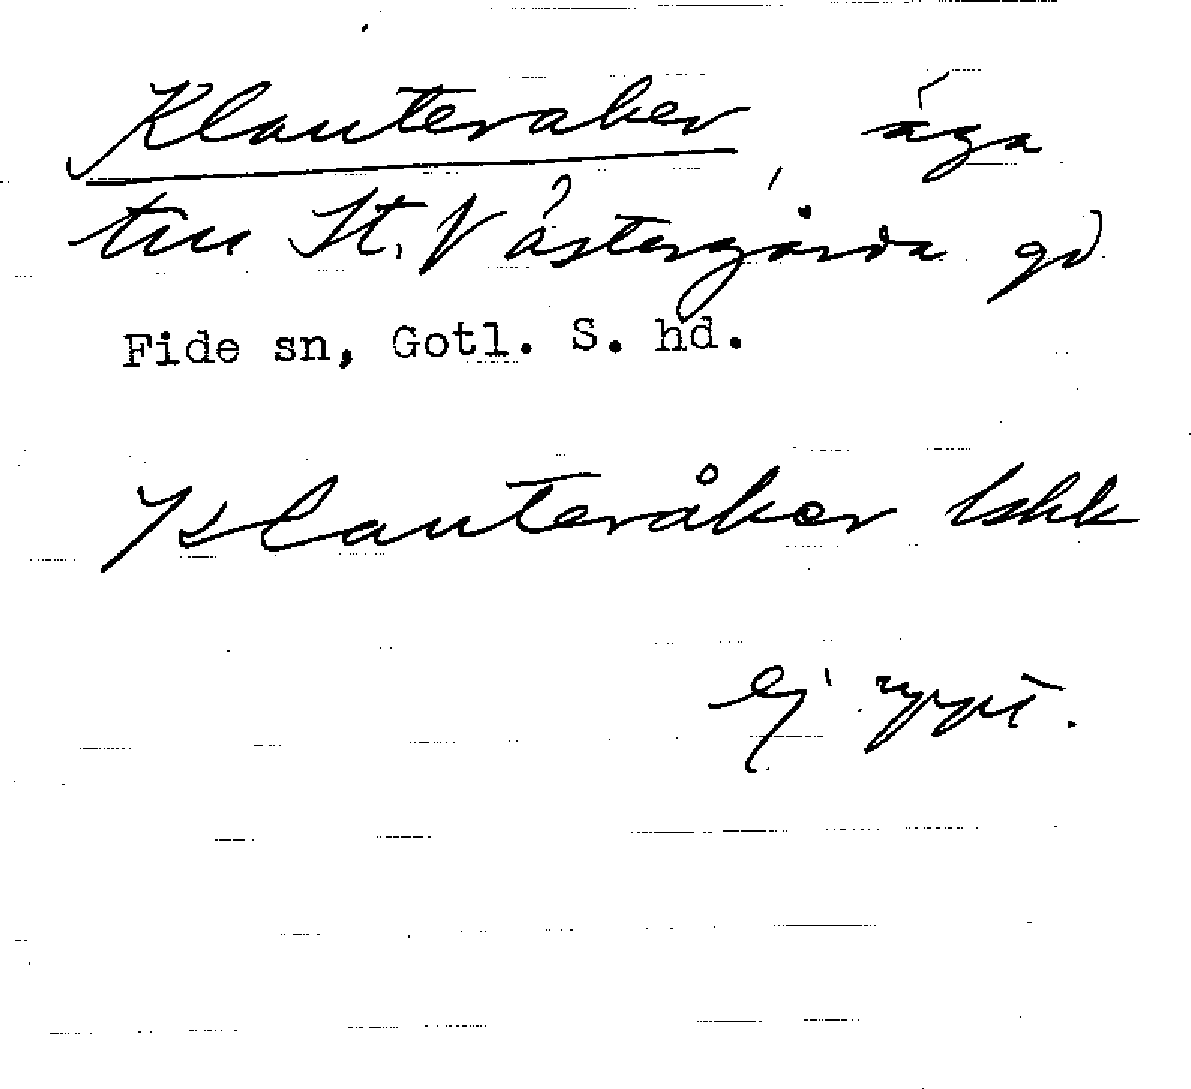 Klauteraker, äga
till St. Västergårda gd
Fide sn, Gotl. S. hd.
Klauteråker lskk
Ej uppt.